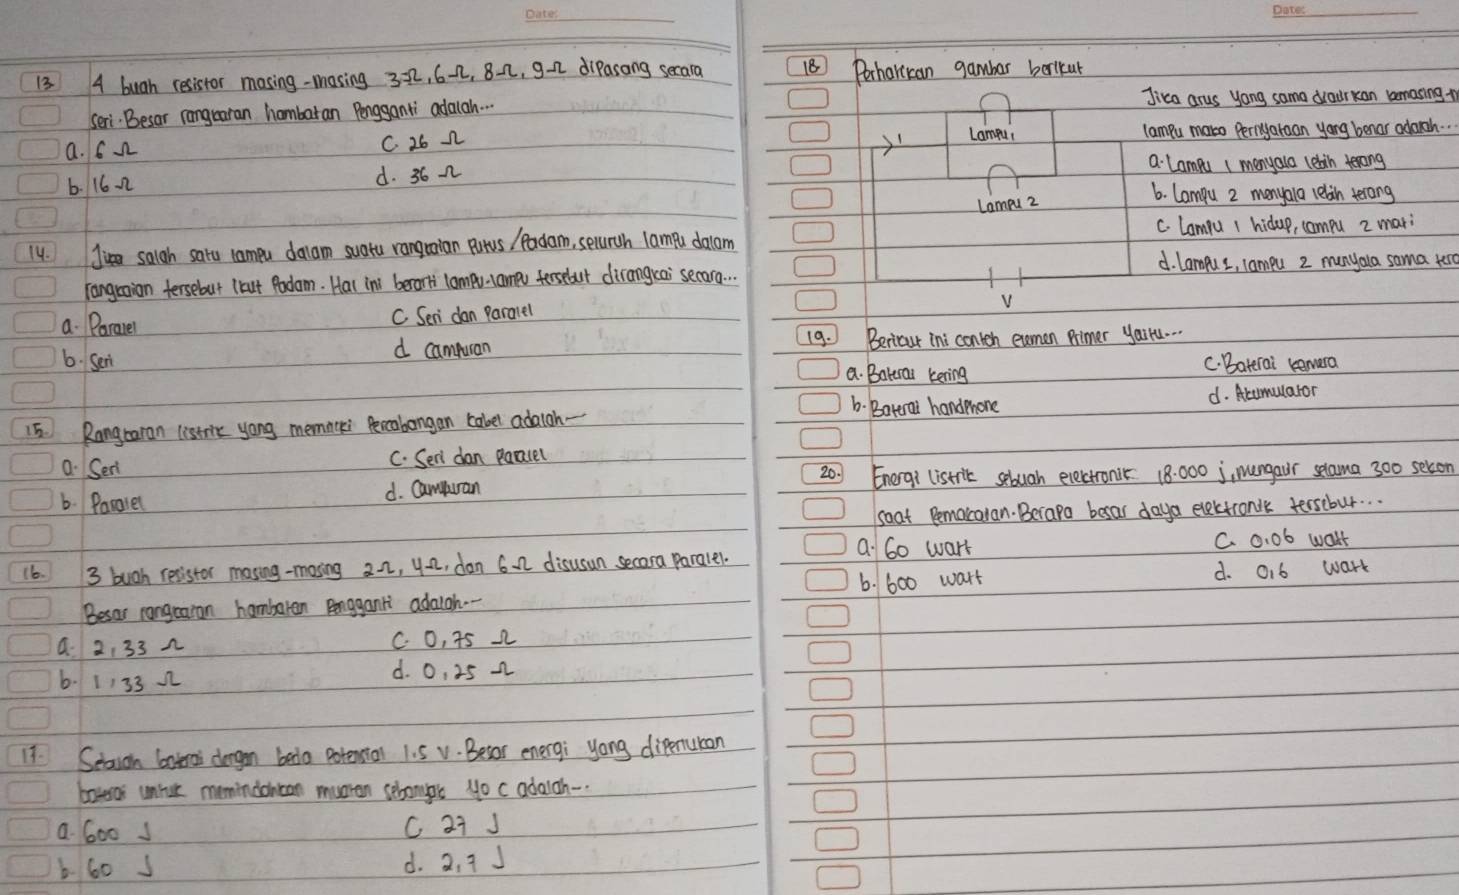 Date:
13 4 buah resistor masing-masing 3 Ω, 6 Ω, 8 Ω, 9 Ω dipasang secara
seri. Besar rangkaian hambatan Pengganti adalah...
a. 6 Ω
c. 26 Ω
b. 16 Ω
d. 36 Ω
14. Jika salah satu lampu dalam suatu rangkaian Putus/Padam, seluruh lampu dalam
rangkaian tersebut ikut Padam. Hal ini berarti lampu-lampu tersebut dirangkai secara...
a. Paralel
c Seri dan Paralel
b. Seri
d campuran
15. Rangkaian listrik yang memiliki Percabangan kabel adalah...
a. Seri
c. Seri dan Paralel
b. Paralel
d. Campuran
16. 3 buah resistor masing-masing 2 Ω, 4 Ω, dan 6 Ω disusun secara Paralel.
Besar rangkaian hambatan Pengganti adalah...
a. 2,33 Ω
c. 0,75 Ω
b. 1,33 Ω
d. 0,25 Ω
17. Sebuah baterai dengan beda Potensial 1.5 V. Besar energi yang diperlukan
baterai untuk memindahkan muatan sebanyak 40 C adalah...
a. 600 J
c 27 J
b. 60 J
d. 2,7 J
Date:
18 Perhatikan gambar berikut
Jika arus yang sama dialirkan kemasing-m
lampu maka Pernyataan yang benar adalah...
a. Lampu 1 menyala lebih terang
b. Lampu 2 menyala lebih terang
c. Lampu 1 hidup, lampu 2 mati
d. Lampu 1, lampu 2 menyala sama tera
Lampu 1
I
Lampu 2
V
19. Berikut ini contoh elemen Primer yaitu...
a. Baterai kering
c. Baterai kamera
b. Baterai handphone
d. Akumulator
20. Energi listrik sebuah elektronik 18.000 j, mengalir selama 300 sekon
saat Pemakaian. Berapa besar daya elektronik tersebut...
a. 60 watt
c. 0.06 watt
b. 600 watt
d. 0,6 watt